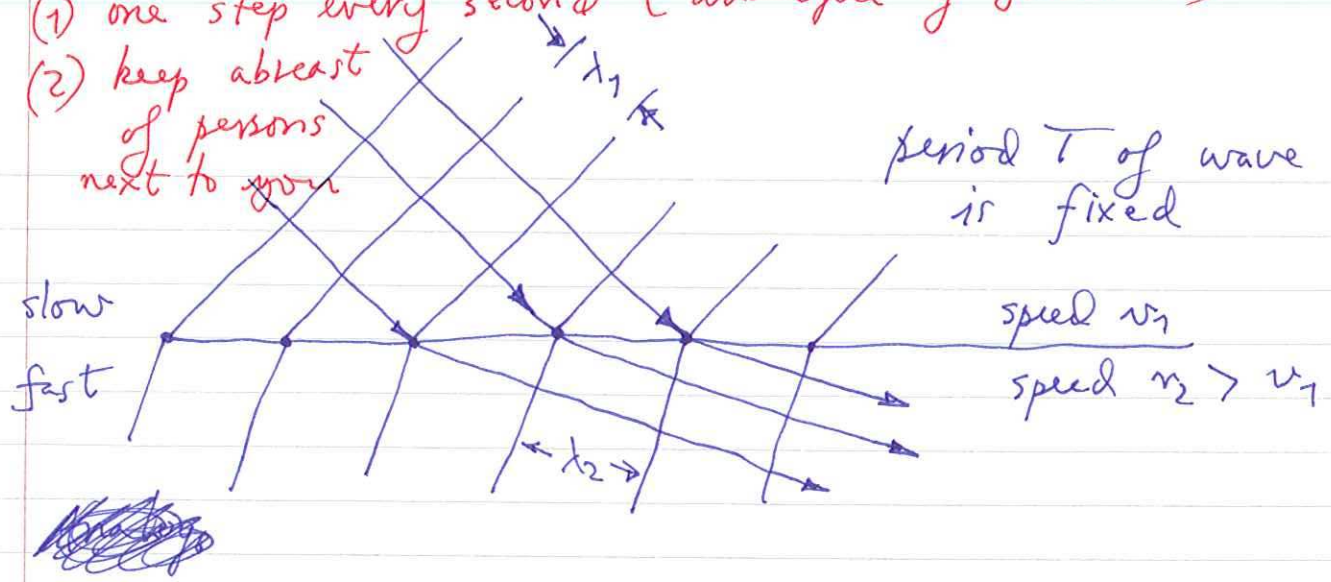 (1) one step every second (
(2) keep abreast
of persons
next to you
λ1
period T of wave
is fixed
slow
speed v1
fast
speed v2 > v1
λ2